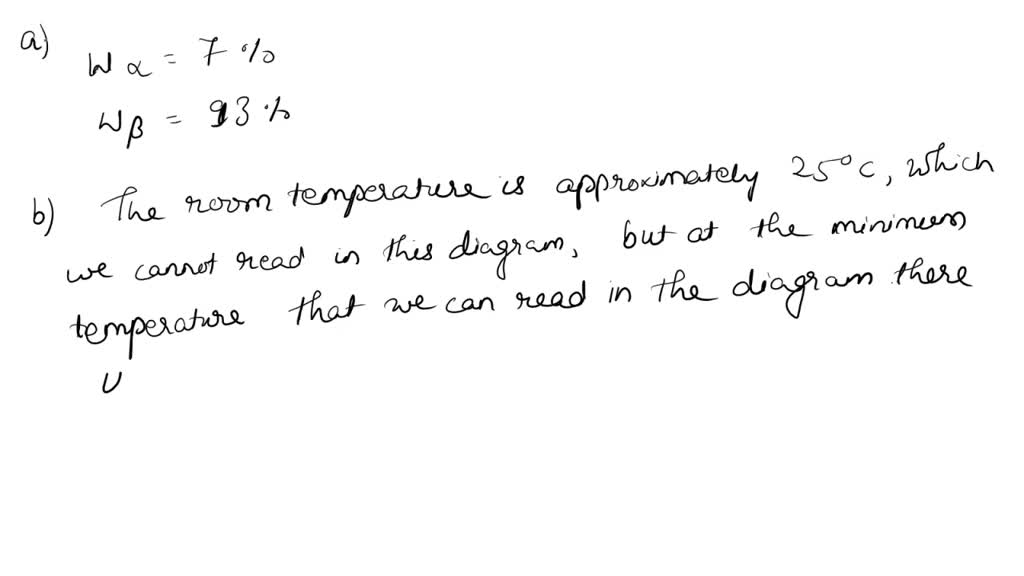 a) Wα = 7 %
Wβ = 93 %
b) The room temperature is approximately 25°C, which
we cannot read in this diagram, but at the minimum
temperature that we can read in the diagram there